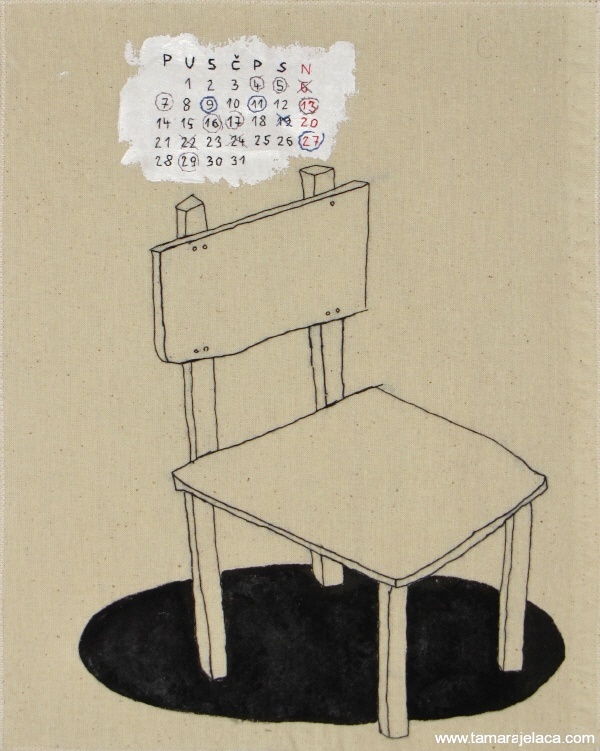 P U S Č P S N
1 2 3 4 5 6
7 8 9 10 11 12 13
14 15 16 17 18 19 20
21 22 23 24 25 26 27
28 29 30 31
www.tamarajelaca.com